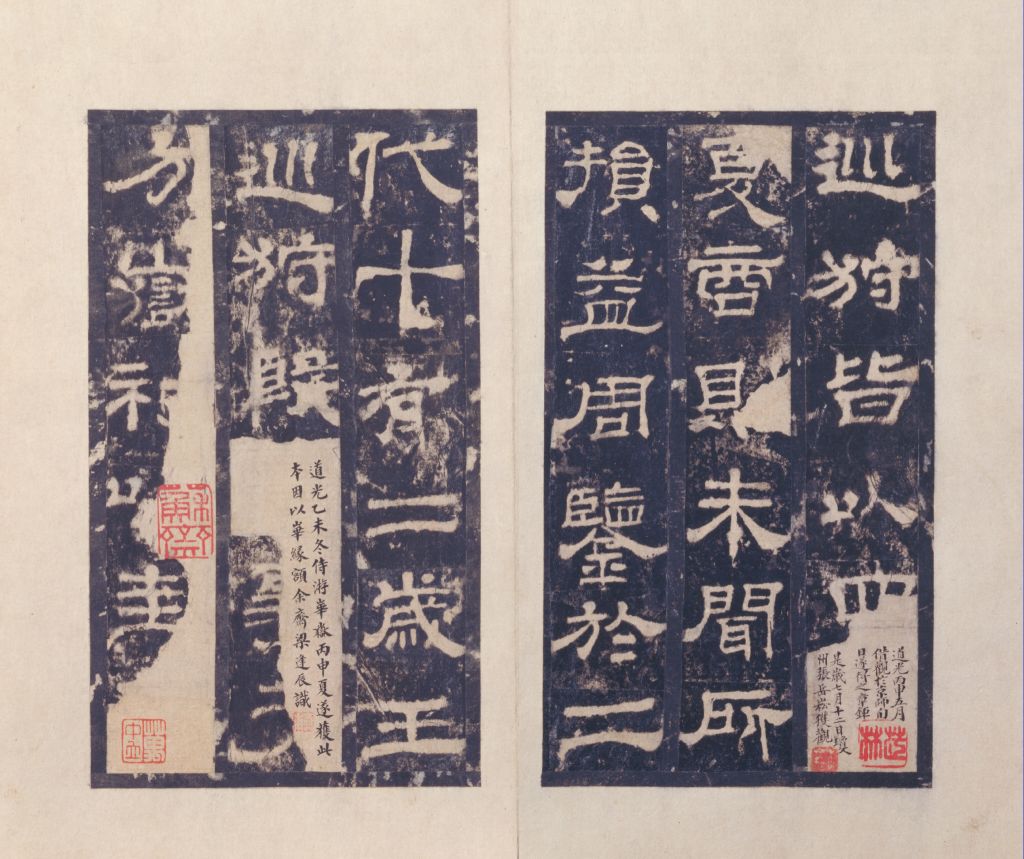 巡狩皆以四
夏商則未聞所
損益周鑒於二
代十有二歲王
巡狩殷
方嶽祀以圭
道光丙申五月
偕觀於京師
是歲七月十二日
州張岳崧獲觀
道光乙未冬侍游華嶽丙申夏遂獲此
本因以華緣顏余齋梁逢辰識
蘇齋